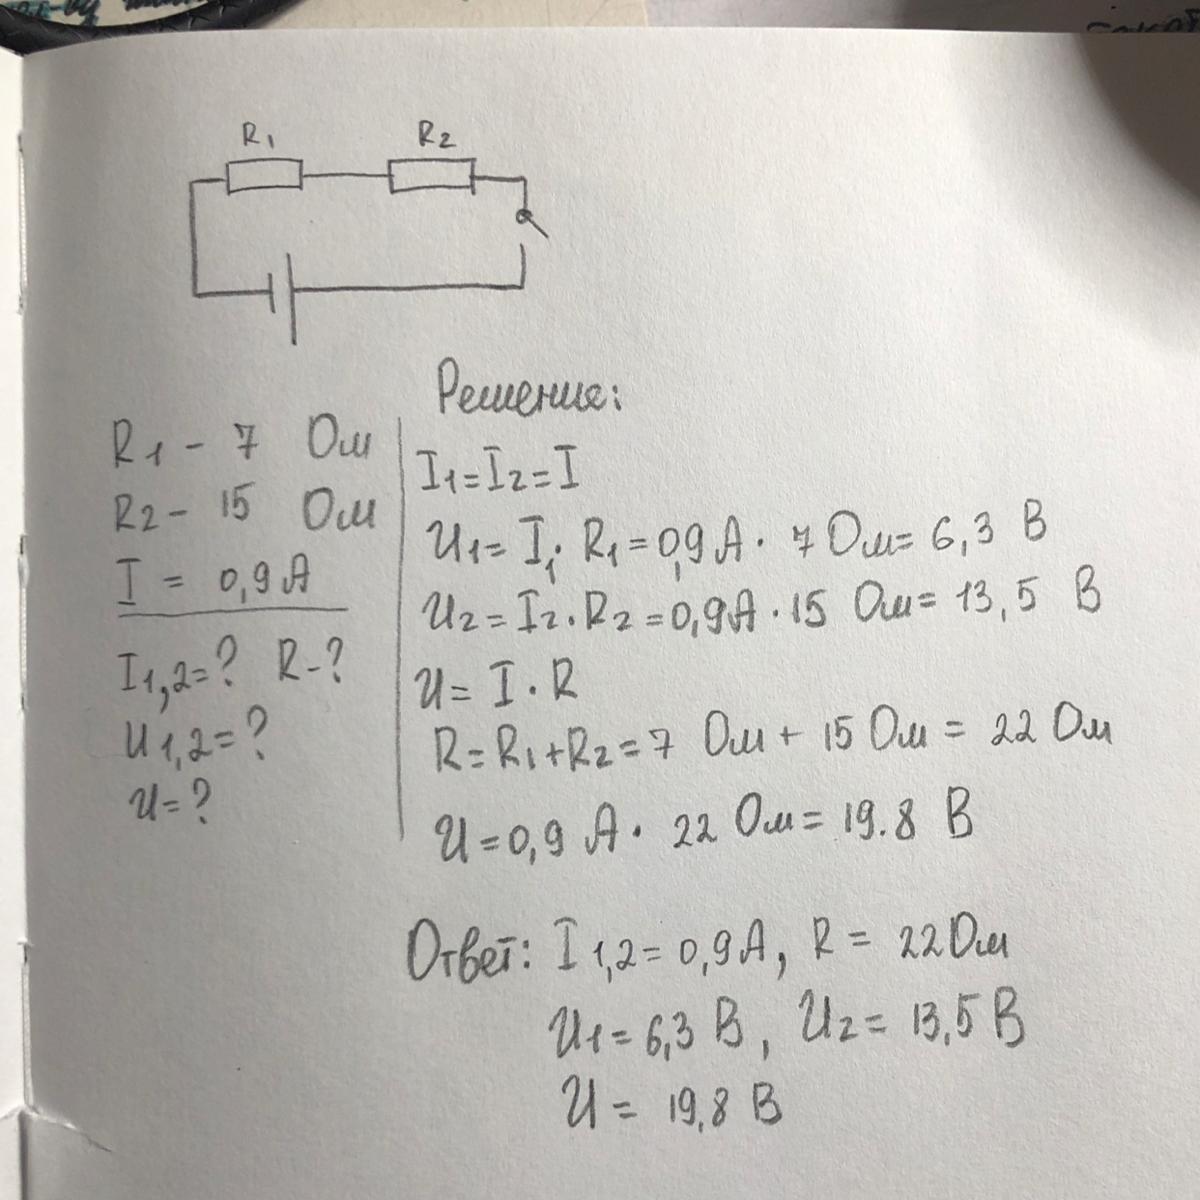 R1 R2
Решение:
R1 - 7 Ом
R2 - 15 Ом
I = 0,9 А
I1,2=? R-?
U1,2=?
U=?
I1=I2=I
U1= I1· R1=0,9 А· 7 Ом= 6,3 В
U2=I2·R2=0,9А·15 Ом= 13,5 В
U= I·R
R=R1+R2=7 Ом+ 15 Ом= 22 Ом
U=0,9 А· 22 Ом= 19.8 В
Ответ: I 1,2= 0,9А, R= 22Ом
U1=6,3 В, U2= 13,5 В
U= 19,8 В